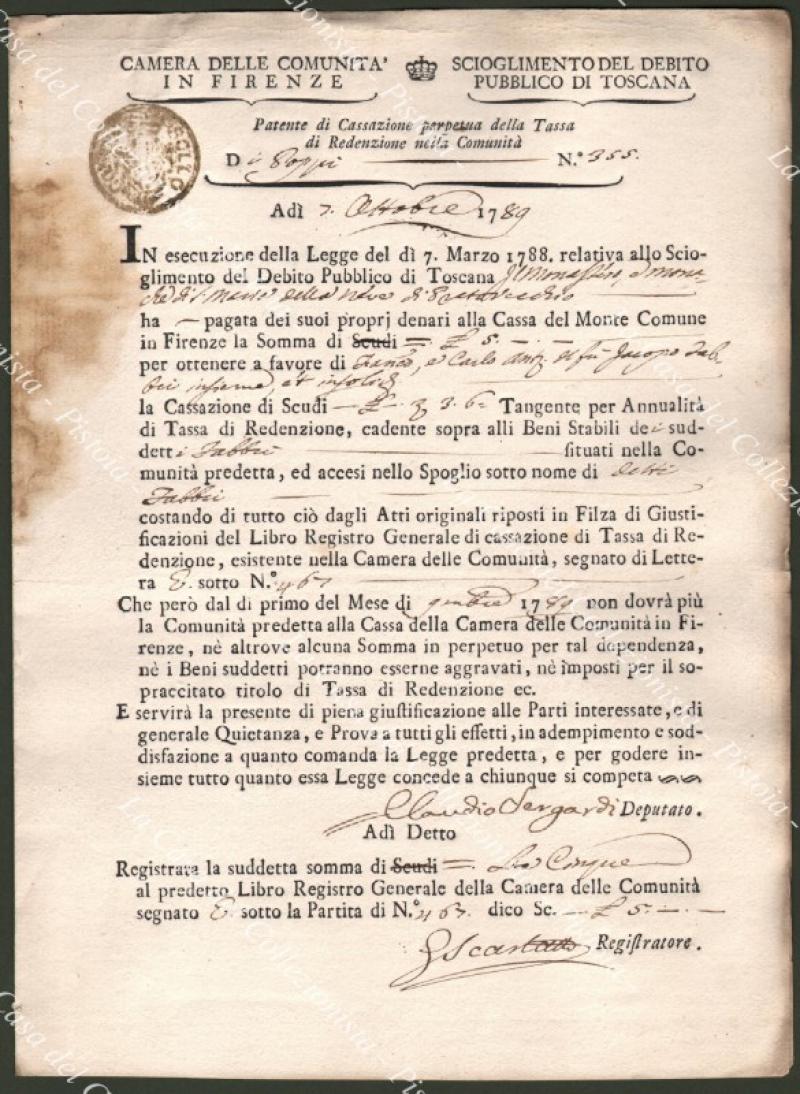 CAMERA DELLE COMUNITA'
IN FIRENZE
SCIOGLIMENTO DEL DEBITO
PUBBLICO DI TOSCANA
BOLLO
Patente di Cassazione perpetua della Tassa
di Redenzione nella Comunità
Di Poppi N.° 355.
Adì 7. Ottobre 1789
IN esecuzione della Legge del dì 7. Marzo 1788. relativa allo Scio-
glimento del Debito Pubblico di Toscana Il Monastero, e Mona-
che di S. Maria della Neve di Pratovecchio
ha pagata dei suoi proprj denari alla Cassa del Monte Comune
in Firenze la Somma di Scudi = £ 5. -. -
per ottenere a favore di Franco, e Carlo Ant. del fu Jacopo Fab-
bri insieme, et insolid.
la Cassazione di Scudi £ 3. 6. Tangente per Annualità
di Tassa di Redenzione, cadente sopra alli Beni Stabili dei sud-
detti Fabbri situati nella Co-
munità predetta, ed accesi nello Spoglio sotto nome di detti
Fabbri
costando di tutto ciò dagli Atti originali riposti in Filza di Giusti-
ficazioni del Libro Registro Generale di cassazione di Tassa di Re-
denzione, esistente nella Camera delle Comunità, segnato di Lette-
ra E. sotto N.° 467
Che però dal dì primo del Mese di 9mbre 1789 non dovrà più
la Comunità predetta alla Cassa della Camera delle Comunità in Fi-
renze, nè altrove alcuna Somma in perpetuo per tal dependenza,
nè i Beni suddetti potranno esserne aggravati, nè imposti per il so-
praccitato titolo di Tassa di Redenzione ec.
E servirà la presente di piena giustificazione alle Parti interessate, e di
generale Quietanza, e Prova a tutti gli effetti, in adempimento e sod-
disfazione a quanto comanda la Legge predetta, e per godere in-
sieme tutto quanto essa Legge concede a chiunque si competa
Claudio Sergardi Deputato.
Adì Detto
Registrata la suddetta somma di Scudi =. Lire Cinque
al predetto Libro Registro Generale della Camera delle Comunità
segnato E. sotto la Partita di N.° 467. dico Sc. - £ 5. -. -
Registratore.
La Casa del Collezionista - Pistoia -